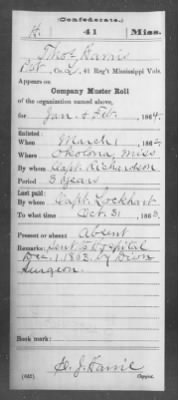 (Confederate.)
H. 41 Miss.
Thos Harris
Pvt, Co. , 41 Reg't Mississippi Vols.
Appears on
Company Muster Roll
of the organization named above,
for Jan & Feb, 1864.
Enlisted:
When March 1, 186
Where Okolona, Miss
By whom Capt. Richardson
Period 3 years
Last paid:
By whom Capt. Lockhart
To what time Oct. 31, 1863.
Present or absent Absent
Remarks: Sent to Hospital
Dec. 1, 1863. by Divsn
Surgeon.
Book mark:
(642) Copyist.